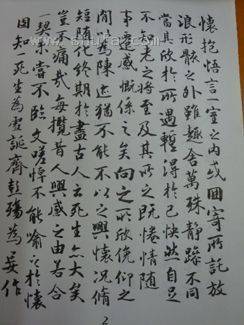 懷抱悟言一室之内或因寄所託放
浪形骸之外雖趣舍萬殊靜躁不同
當其欣於所遇暫得於己怏然自足
不知老之將至及其所之既惓情隨
事遷感慨係之矣向之所欣俛仰之
間以為陳迹猶不能不以之興懷況脩
短隨化終期於盡古人云死生亦大矣
豈不痛哉每攬昔人興感之由若合
一契未嘗不臨文嗟悼不能喻之於懷
固知死生為虛誕齊彭殤為妄作
2